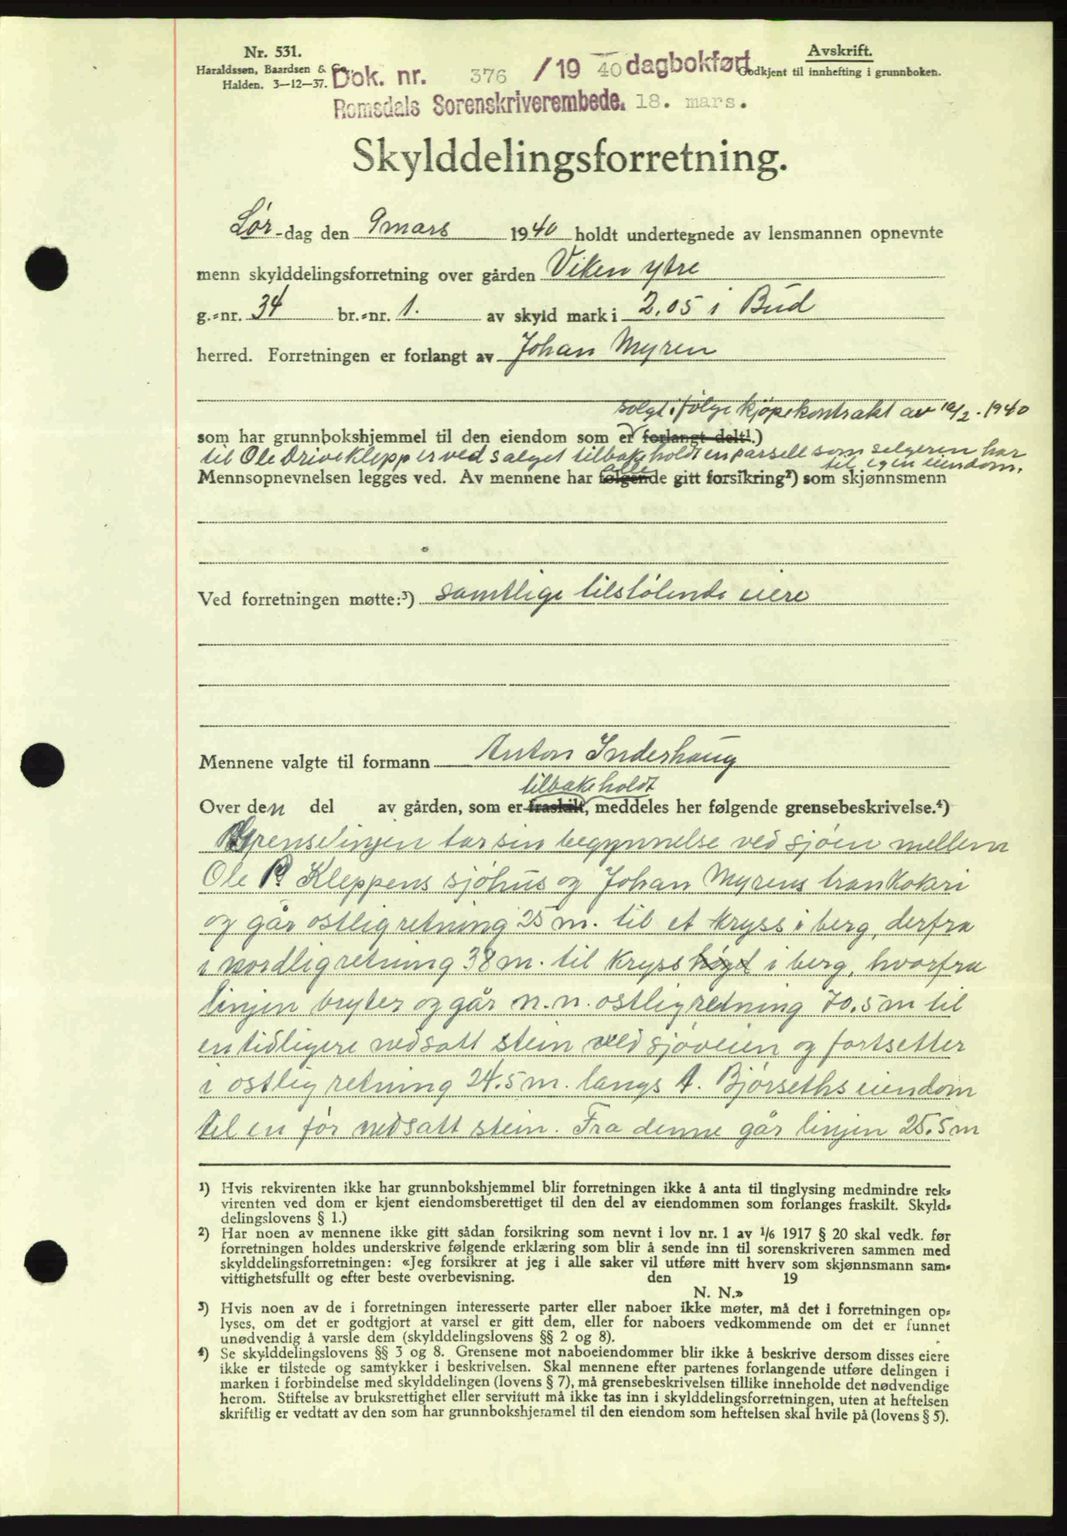 Nr. 531.
Haraldssøn, Baardsen & Co.
Halden. 3—12—37.
Avskrift.
Godkjent til innhefting i grunnboken.
Dok. nr. 376 /19 40 dagbokført
Romsdals Sorenskriverembede. 18. mars.
Skylddelingsforretning.
Lør-dag den 9 mars 1940 holdt undertegnede av lensmannen opnevnte
menn skylddelingsforretning over gården Viken ytre
g.-nr. 34 br.-nr. 1. av skyld mark i 2.05 i Bud
herred. Forretningen er forlangt av Johan Myren
solgt ifølge kjøpekontrakt av 10/2-1940
som har grunnbokshjemmel til den eiendom som er forlangt delt¹.)
til Ole Driveklepp er ved salget tilbakeholdt en parsell som selgeren har
til egen eiendom.
Mennsopnevnelsen legges ved. Av mennene har følgende gitt forsikring²) som skjønnsmenn
Ved forretningen møtte:³) samtlige tilstøtende eiere
Mennene valgte til formann Anton Inderhaug
tilbakeholdt
Over den del av gården, som er fraskilt, meddeles her følgende grensebeskrivelse.⁴)
Grenselinjen tar sin begynnelse ved sjøen mellem
Ole Kleppens sjøhus og Johan Myrens trankokeri
og går ostlig retning 25 m. til et kryss i berg, derfra
i nordlig retning 38 m. til kryss høgd i berg, hvorfra
linjen bryter og går n.n. ostlig retning 70.5 m til
en tidligere nedsatt stein ved sjøveien og fortsetter
i ostlig retning 24.5 m. langs A. Bjørseths eiendom
til en før nedsatt stein. Fra denne går linjen 25.5 m
¹) Hvis rekvirenten ikke har grunnbokshjemmel blir forretningen ikke å anta til tinglysing medmindre rek-
virenten ved dom er kjent eiendomsberettiget til den del av eiendommen som forlanges fraskilt. Skyld-
delingslovens § 1.)
²) Har noen av mennene ikke gitt sådan forsikring som nevnt i lov nr. 1 av 1/6 1917 § 20 skal vedk. før
forretningen holdes underskrive følgende erklæring som blir å sende inn til sorenskriveren sammen med
skylddelingsforretningen: «Jeg forsikrer at jeg i alle saker vil utføre mitt hverv som skjønnsmann sam-
vittighetsfullt og efter beste overbevisning. den 19
N. N.»
³) Hvis noen av de i forretningen interesserte parter eller naboer ikke møter, må det i forretningen op-
lyses, om det er godtgjort at varsel er gitt dem, eller for naboers vedkommende om det er funnet
unødvendig å varsle dem (skylddelingslovens §§ 2 og 8).
⁴) Se skylddelingslovens §§ 3 og 8. Grensene mot naboeiendommer blir ikke å beskrive dersom disses eiere
ikke er tilstede og samtykker i beskrivelsen. Skal mennene efter partenes forlangende utføre delingen i
marken i forbindelse med skylddelingen (lovens § 7), må grensebeskrivelsen tillike inneholde det nødvendige
herom. Stiftelse av bruksrettighet eller servitutt må ikke tas inn i skylddelingsforretningen, uten at heftelsen
skriftlig er vedtatt av den som har grunnbokshjemmel til den eiendom som heftelsen skal hvile på (lovens § 5).